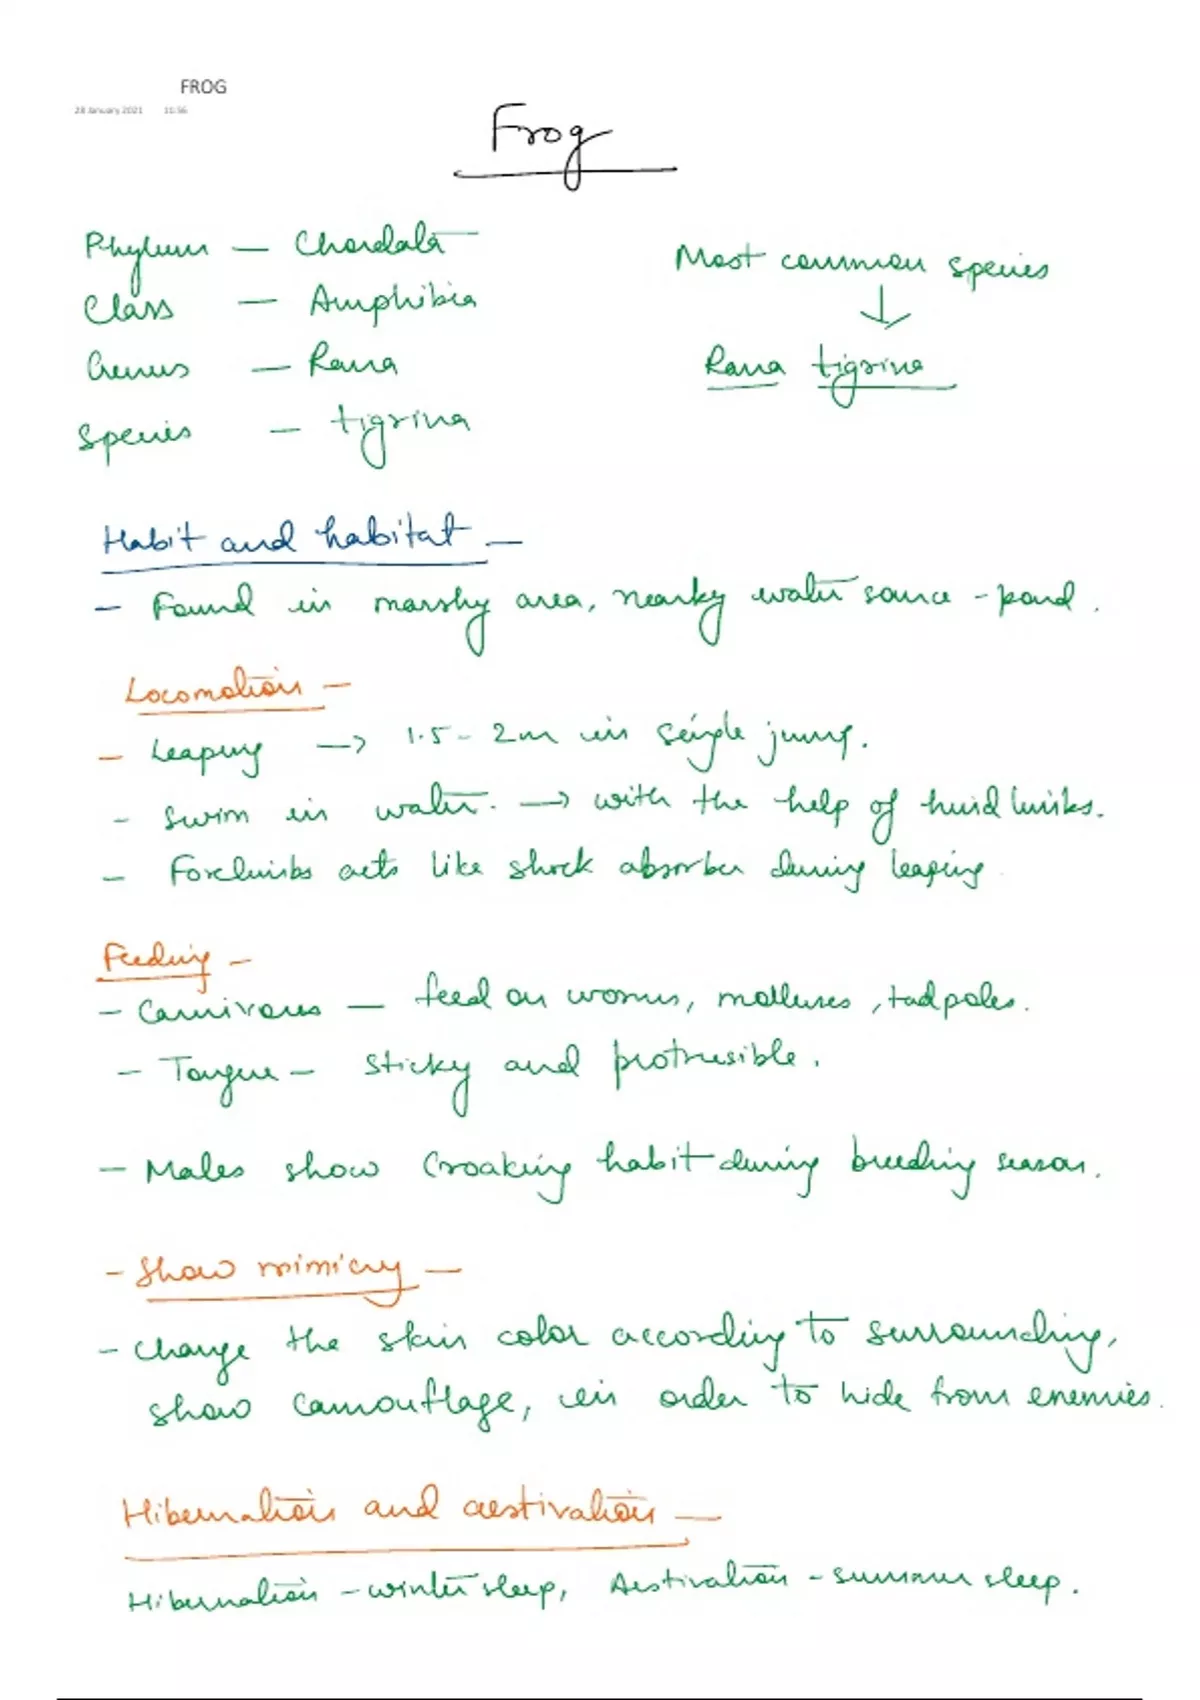 FROG
28 January 2021 11:56
Frog
Phylum — Chordata
Class — Amphibia
Genus — Rana
Species — tigrina
Most common species
↓
Rana tigrina
Habit and habitat —
- Found in marshy area, nearby water source - pond.
Locomotion —
- Leaping → 1.5 - 2m in single jump.
- Swim in water. → with the help of hind limbs.
- Forelimbs acts like shock absorber during leaping
Feeding —
- Carnivorous — feed on worms, molluscs, tadpoles.
- Tongue — sticky and protrusible.
- Males show Croaking habit during breeding season.
- Show mimicry —
- Change the skin color according to surrounding,
show camouflage, in order to hide from enemies.
Hibernation and aestivation —
Hibernation - winter sleep, Aestivation - summer sleep.